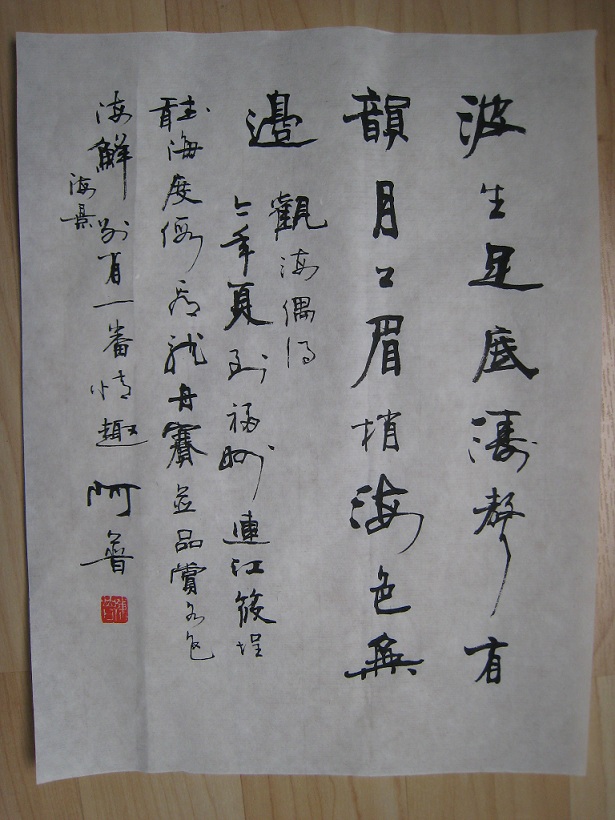 波生足底濤聲有
韻月上眉梢海色無
邊
觀海偶得
今年夏到福州連江筱埕
聽海度假看龍舟賽並品賞各色
海鮮別有一番情趣 阿
海景